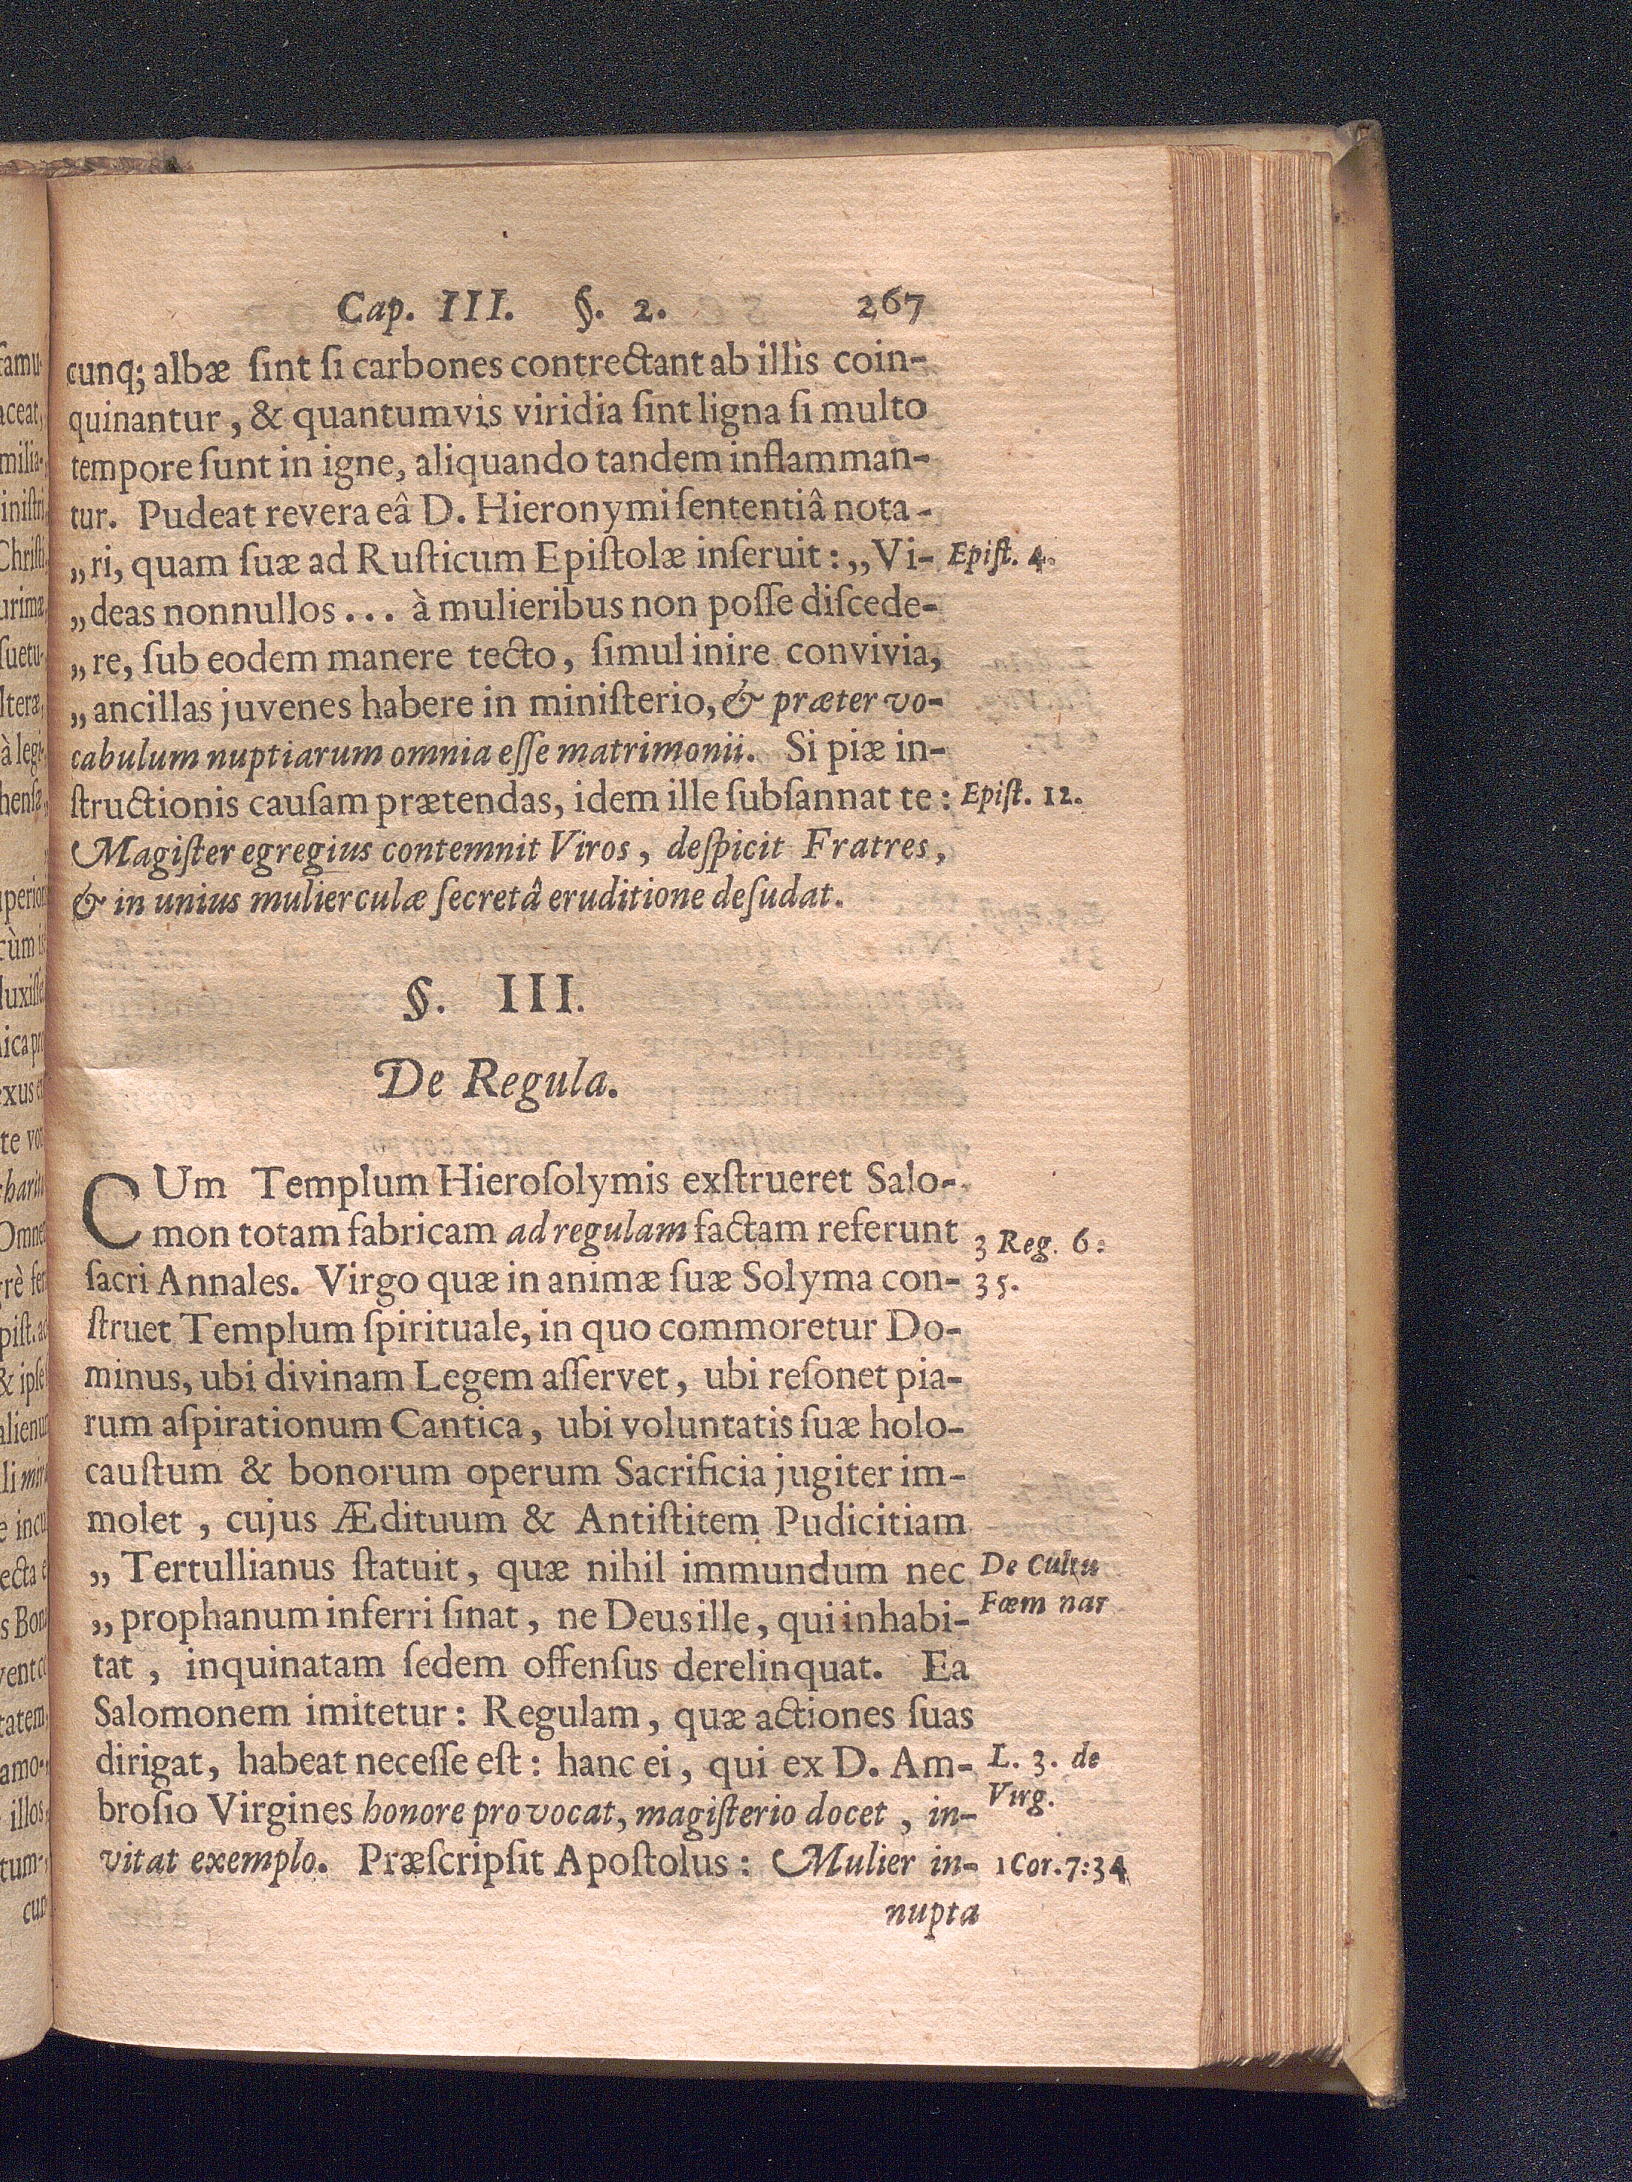 Cap. III. §. 2. 267
cunq; albæ ſint ſi carbones contrectant ab illis coin-
quinantur, & quantumvis viridia ſint ligna ſi multo
tempore ſunt in igne, aliquando tandem inflamman-
tur. Pudeat revera eâ D. Hieronymi ſententiâ nota-
„ri, quam ſuæ ad Ruſticum Epiſtolæ inſeruit: „Vi- Epiſt. 4.
„deas nonnullos... à mulieribus non poſſe diſcede-
„re, ſub eodem manere tecto, ſimul inire convivia,
„ancillas juvenes habere in miniſterio, & præter vo-
cabulum nuptiarum omnia eſſe matrimonii. Si piæ in-
ſtructionis cauſam prætendas, idem ille ſubſannat te: Epiſt. 12.
Magiſter egregius contemnit Viros, deſpicit Fratres,
& in unius mulierculæ ſecretâ eruditione deſudat.
§. III.
De Regula.
CUm Templum Hieroſolymis exſtrueret Salo-
mon totam fabricam ad regulam factam referunt 3 Reg. 6:
ſacri Annales. Virgo quæ in animæ ſuæ Solyma con- 35.
ſtruet Templum ſpirituale, in quo commoretur Do-
minus, ubi divinam Legem aſſervet, ubi reſonet pia-
rum aſpirationum Cantica, ubi voluntatis ſuæ holo-
cauſtum & bonorum operum Sacrificia jugiter im-
molet, cujus Ædituum & Antiſtitem Pudicitiam
„Tertullianus ſtatuit, quæ nihil immundum nec De Cultu
„prophanum inferri ſinat, ne Deus ille, qui inhabi- Fœm nar
tat, inquinatam ſedem offenſus derelinquat. Ea
Salomonem imitetur: Regulam, quæ actiones ſuas
dirigat, habeat neceſſe eſt: hanc ei, qui ex D. Am- L. 3. de
broſio Virgines honore provocat, magiſterio docet, in- Virg.
vitat exemplo. Præſcripſit Apoſtolus: Mulier in- 1 Cor. 7:34
nupta